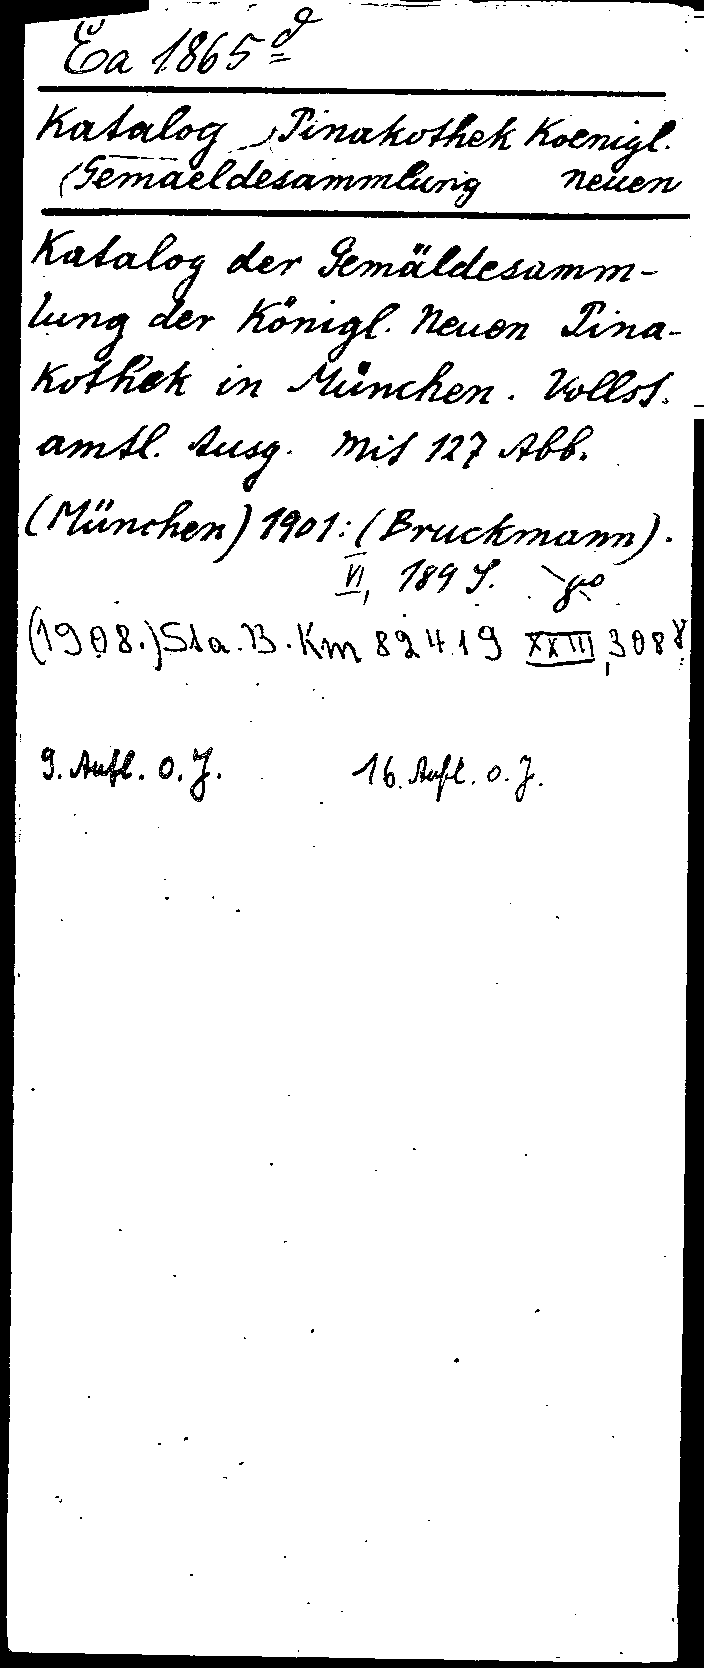 Ëa 1865 d
Katalog Pinakothek Koenigl.
Gemaeldesammlung neuen
Katalog der Gemäldesamm-
lung der Königl. Neuen Pina-
kothek in München. Vollst.
amtl. Ausg. Mit 127 Abb.
(München) 1901: (Bruckmann).
VI, 189 S. 8°
(1908.) Sta.B. Km 82419 XXIII, 308 S.
9. Aufl. o. J. 16. Aufl. o. J.